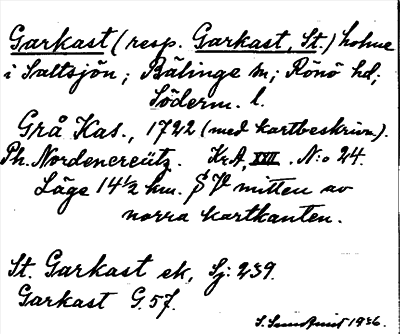 Garkast (resp. Garkast, St.) holme
i Saltsjön; Bälinge sn; Rönö hd;
Söderm. l.
Grå Kas., 1722 (med kartbeskrivn.).
Ph. Nordencreütz. Kr.A, XIII. N:o 24.
Läge 14½ hm. SV mitten av
norra kartkanten.
St. Garkast ek, Sj: 239.
Garkast G. 57.
S. 1936.